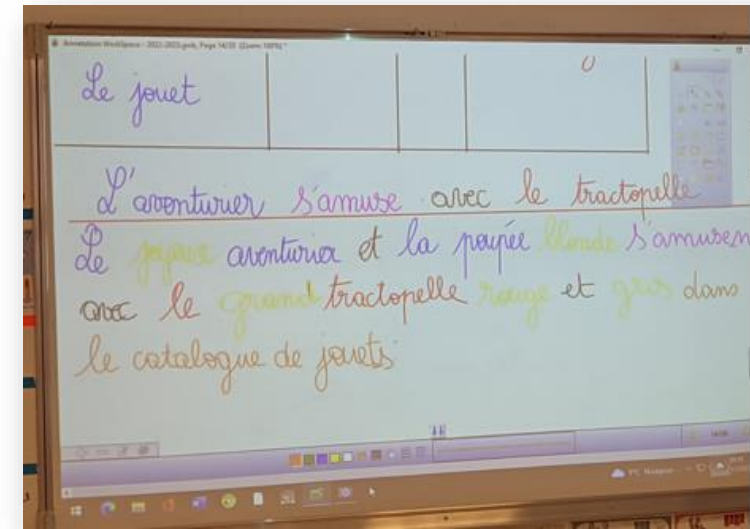 Annotation WorkSpace - 2022-2023.gwb, Page 14/20 (Zoom 100%) *
Le jouet
L'aventurier s'amuse avec le tractopelle
Le joyeux aventurier et la poupée blonde s'amusen
avec le grand tractopelle rouge et gris dans
le catalogue de jouets.